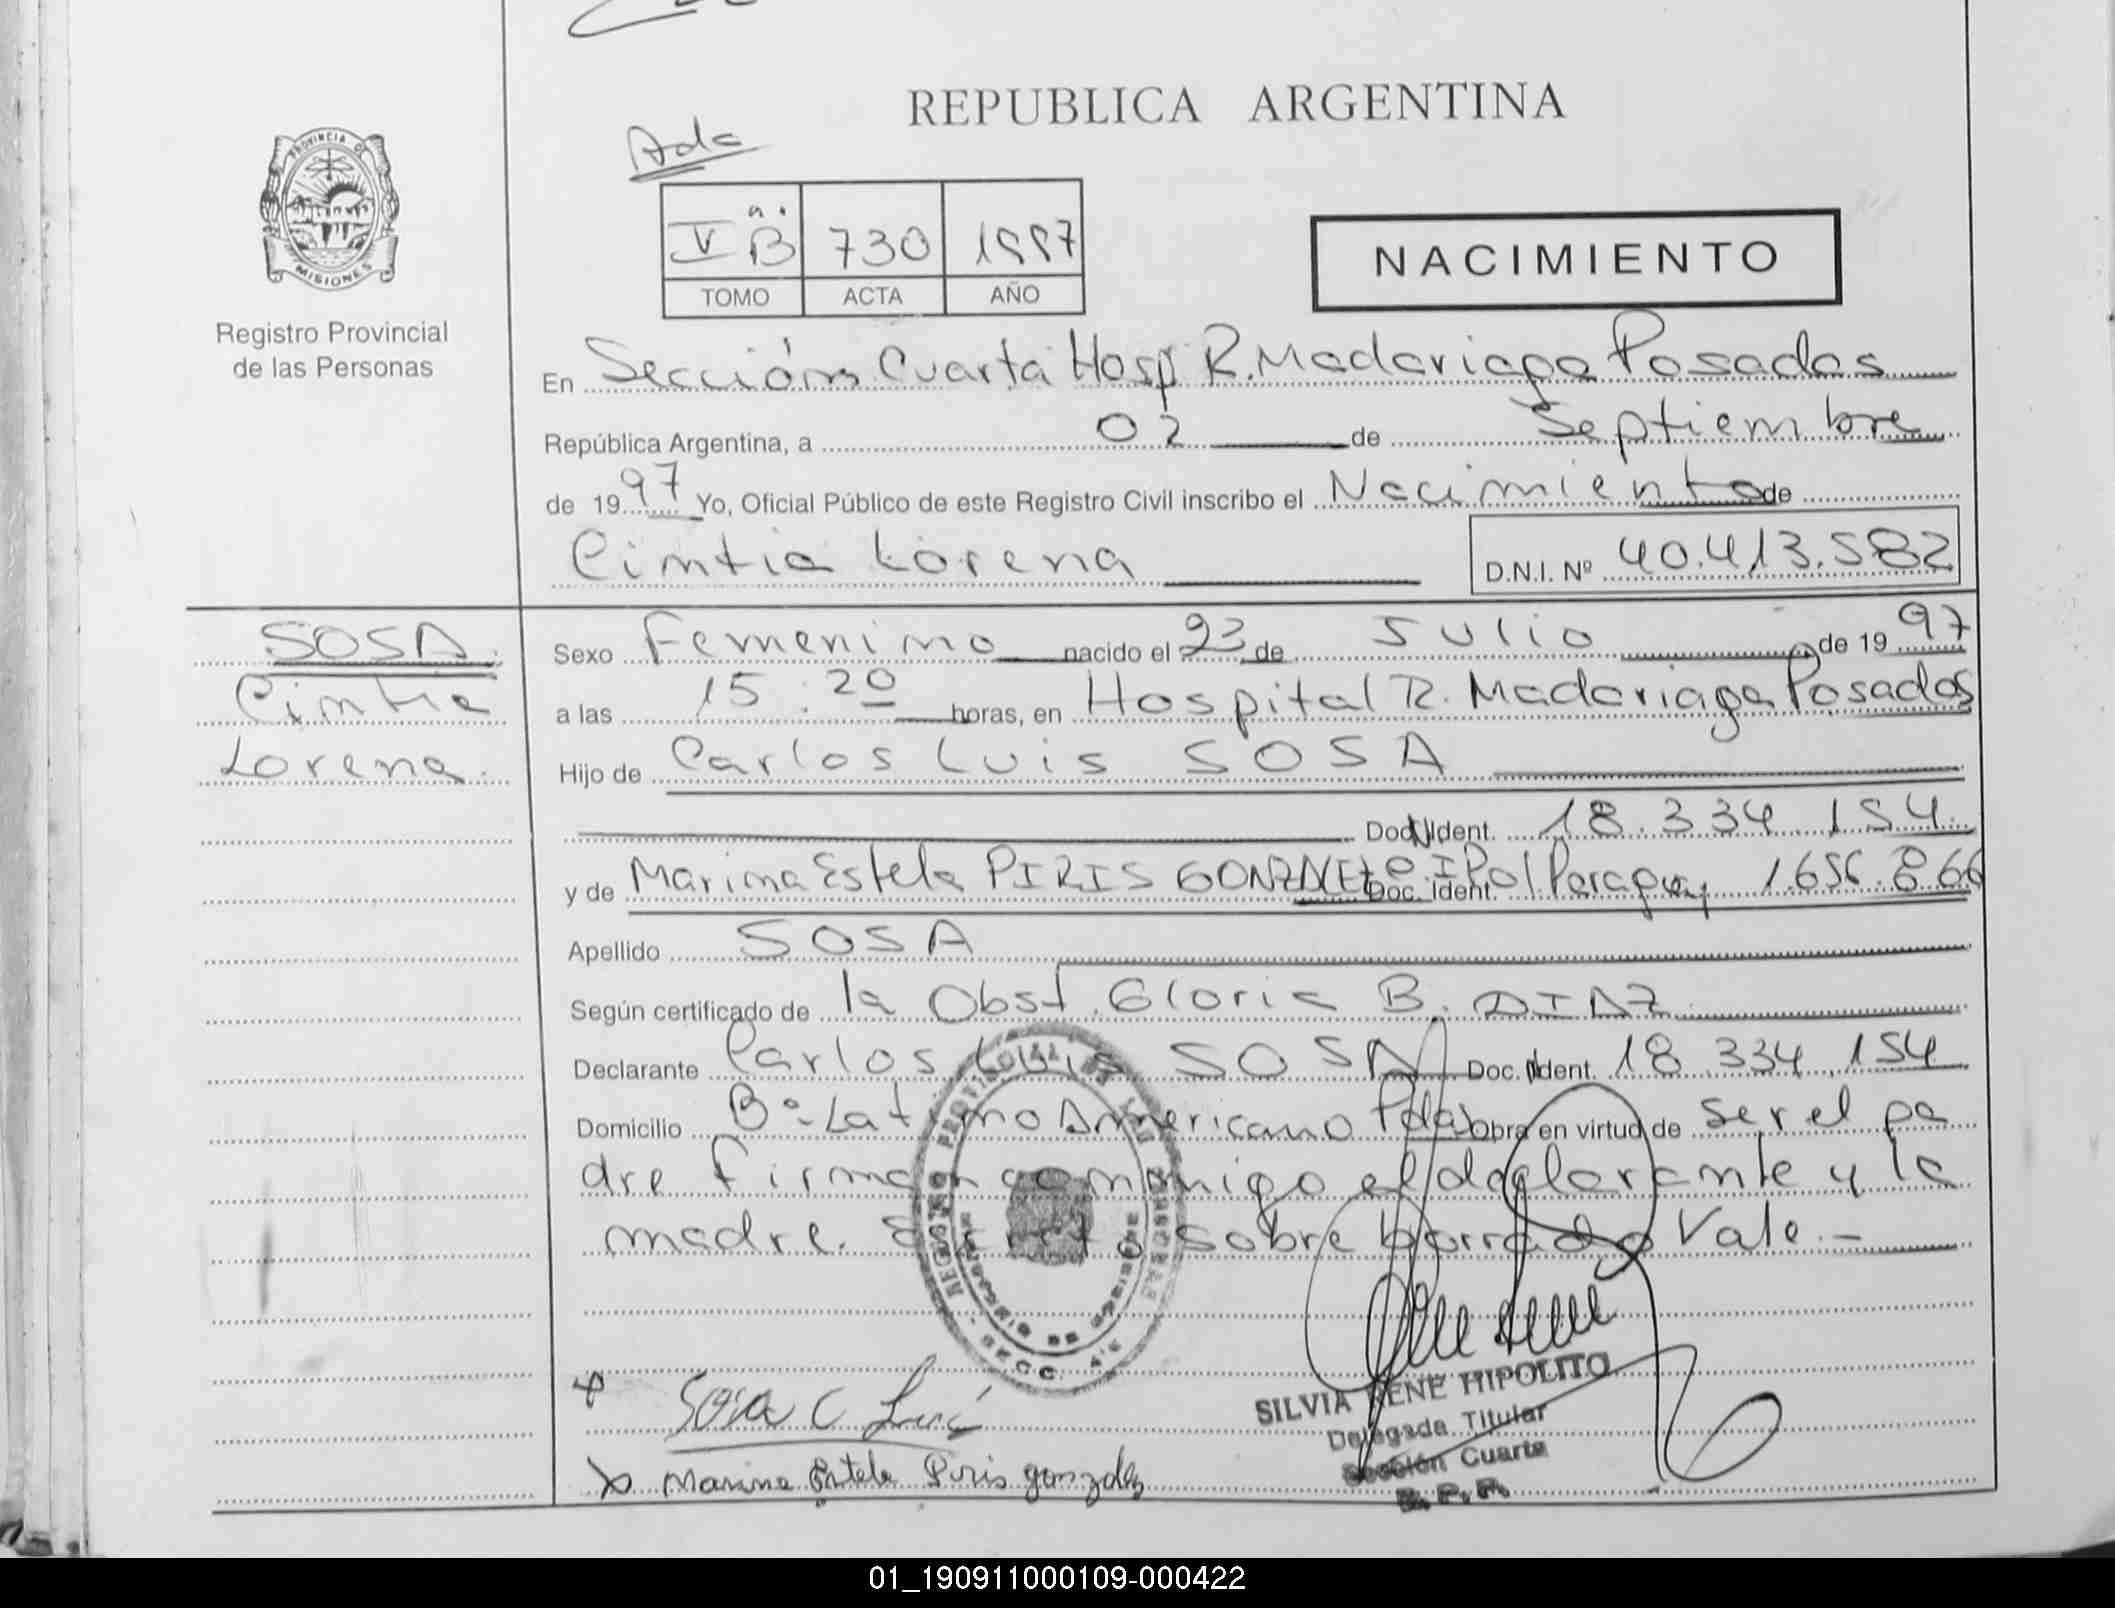 REPUBLICA ARGENTINA
PROVINCIA DE
MISIONES
Registro Provincial
de las Personas
Ada
V B 730 1997
TOMO ACTA AÑO
NACIMIENTO
En Sección Cuarta Hosp R. Madariaga Posadas
República Argentina, a 02 de Septiembre
de 1997 Yo, Oficial Público de este Registro Civil inscribo el Nacimiento de
Cintia Lorena D.N.I. Nº 40.413.582
SOSA.
Cintia
Lorena.
Sexo Femenino nacido el 23 de Julio de 1997
a las 15:20 horas, en Hospital R. Madariaga Posadas
Hijo de Carlos Luis SOSA
Doc. Ident. 18.334.154
y de Marina Estela PIRIS GONZALEZ Doc. Ident. C.I.Pol Paraguay 1.656.866
Apellido SOSA
Según certificado de la Obst. Gloria B. DIAZ
Declarante Carlos Luis SOSA Doc. Ident. 18.334.154
Domicilio Bº Latino Americano Pdas obra en virtud de ser el pa
dre firman conmigo el declarante y la
madre. Escrito sobre borrado Vale.-
Sosa C Luis
Marina Estela Piris gonzalez
SILVIA RENE HIPOLITO
Delegada Titular
Sección Cuarta
R.P.P.
01_190911000109-000422